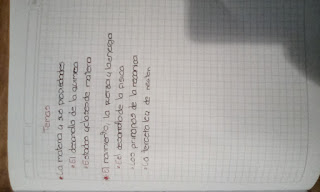 Temas
• La materia y sus propiedades
• El desarrollo de la quimica
• Estados y clases de materia
• El movimiento, la fuerza y la energia
• El desarrollo de la fisica
• Los principios de la mecanica
• La tercera ley de newton